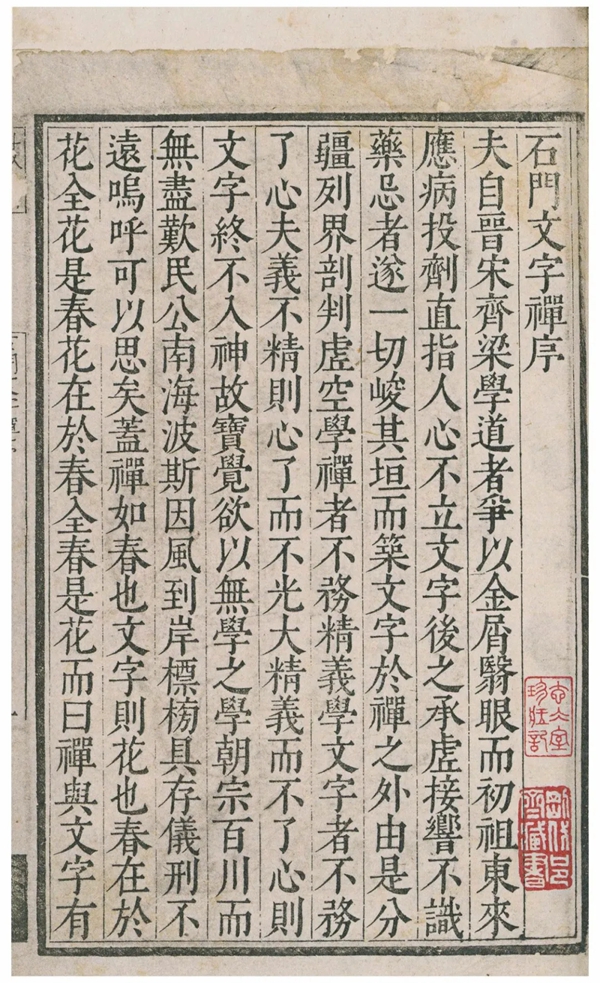 石門文字禪序
夫自晉宋齊梁學道者爭以金屑翳眼而初祖東來
應病投劑直指人心不立文字後之承虛接響不識
藥忌者遂一切峻其垣而築文字於禪之外由是分
疆列界剖判虛空學禪者不務精義學文字者不務
了心夫義不精則心了而不光大精義而不了心則
文字終不入神故寶覺欲以無學之學朝宗百川而
無盡歎民公南海波斯因風到岸標榜具存儀刑不
遠嗚呼可以思矣蓋禪如春也文字則花也春在於
花全花是春花在於春全春是花而曰禪與文字有